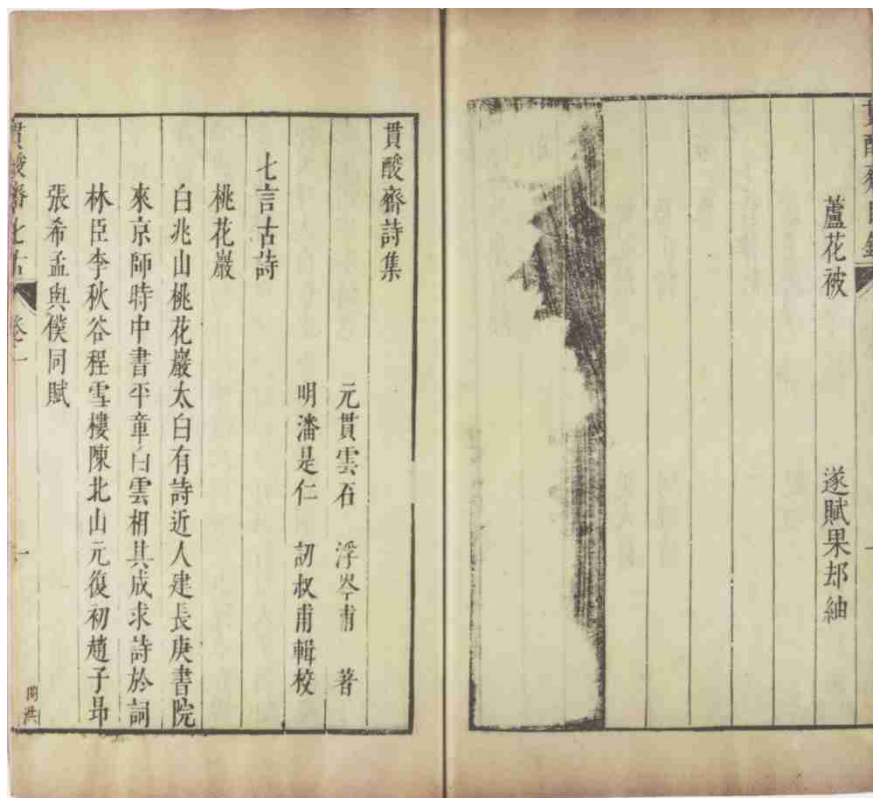 貫酸齋目錄
蘆花被 遂賦果却紬
貫酸齋詩集
元貫雲石 浮岑甫 著
明潘是仁 訒叔甫輯校
七言古詩
桃花巖
白兆山桃花巖太白有詩近人建長庚書院
來京師時中書平章白雲相其成求詩於詞
林臣李秋谷程雪樓陳北山元復初趙子昻
張希孟與僕同賦
貫酸齋七古 卷一 一